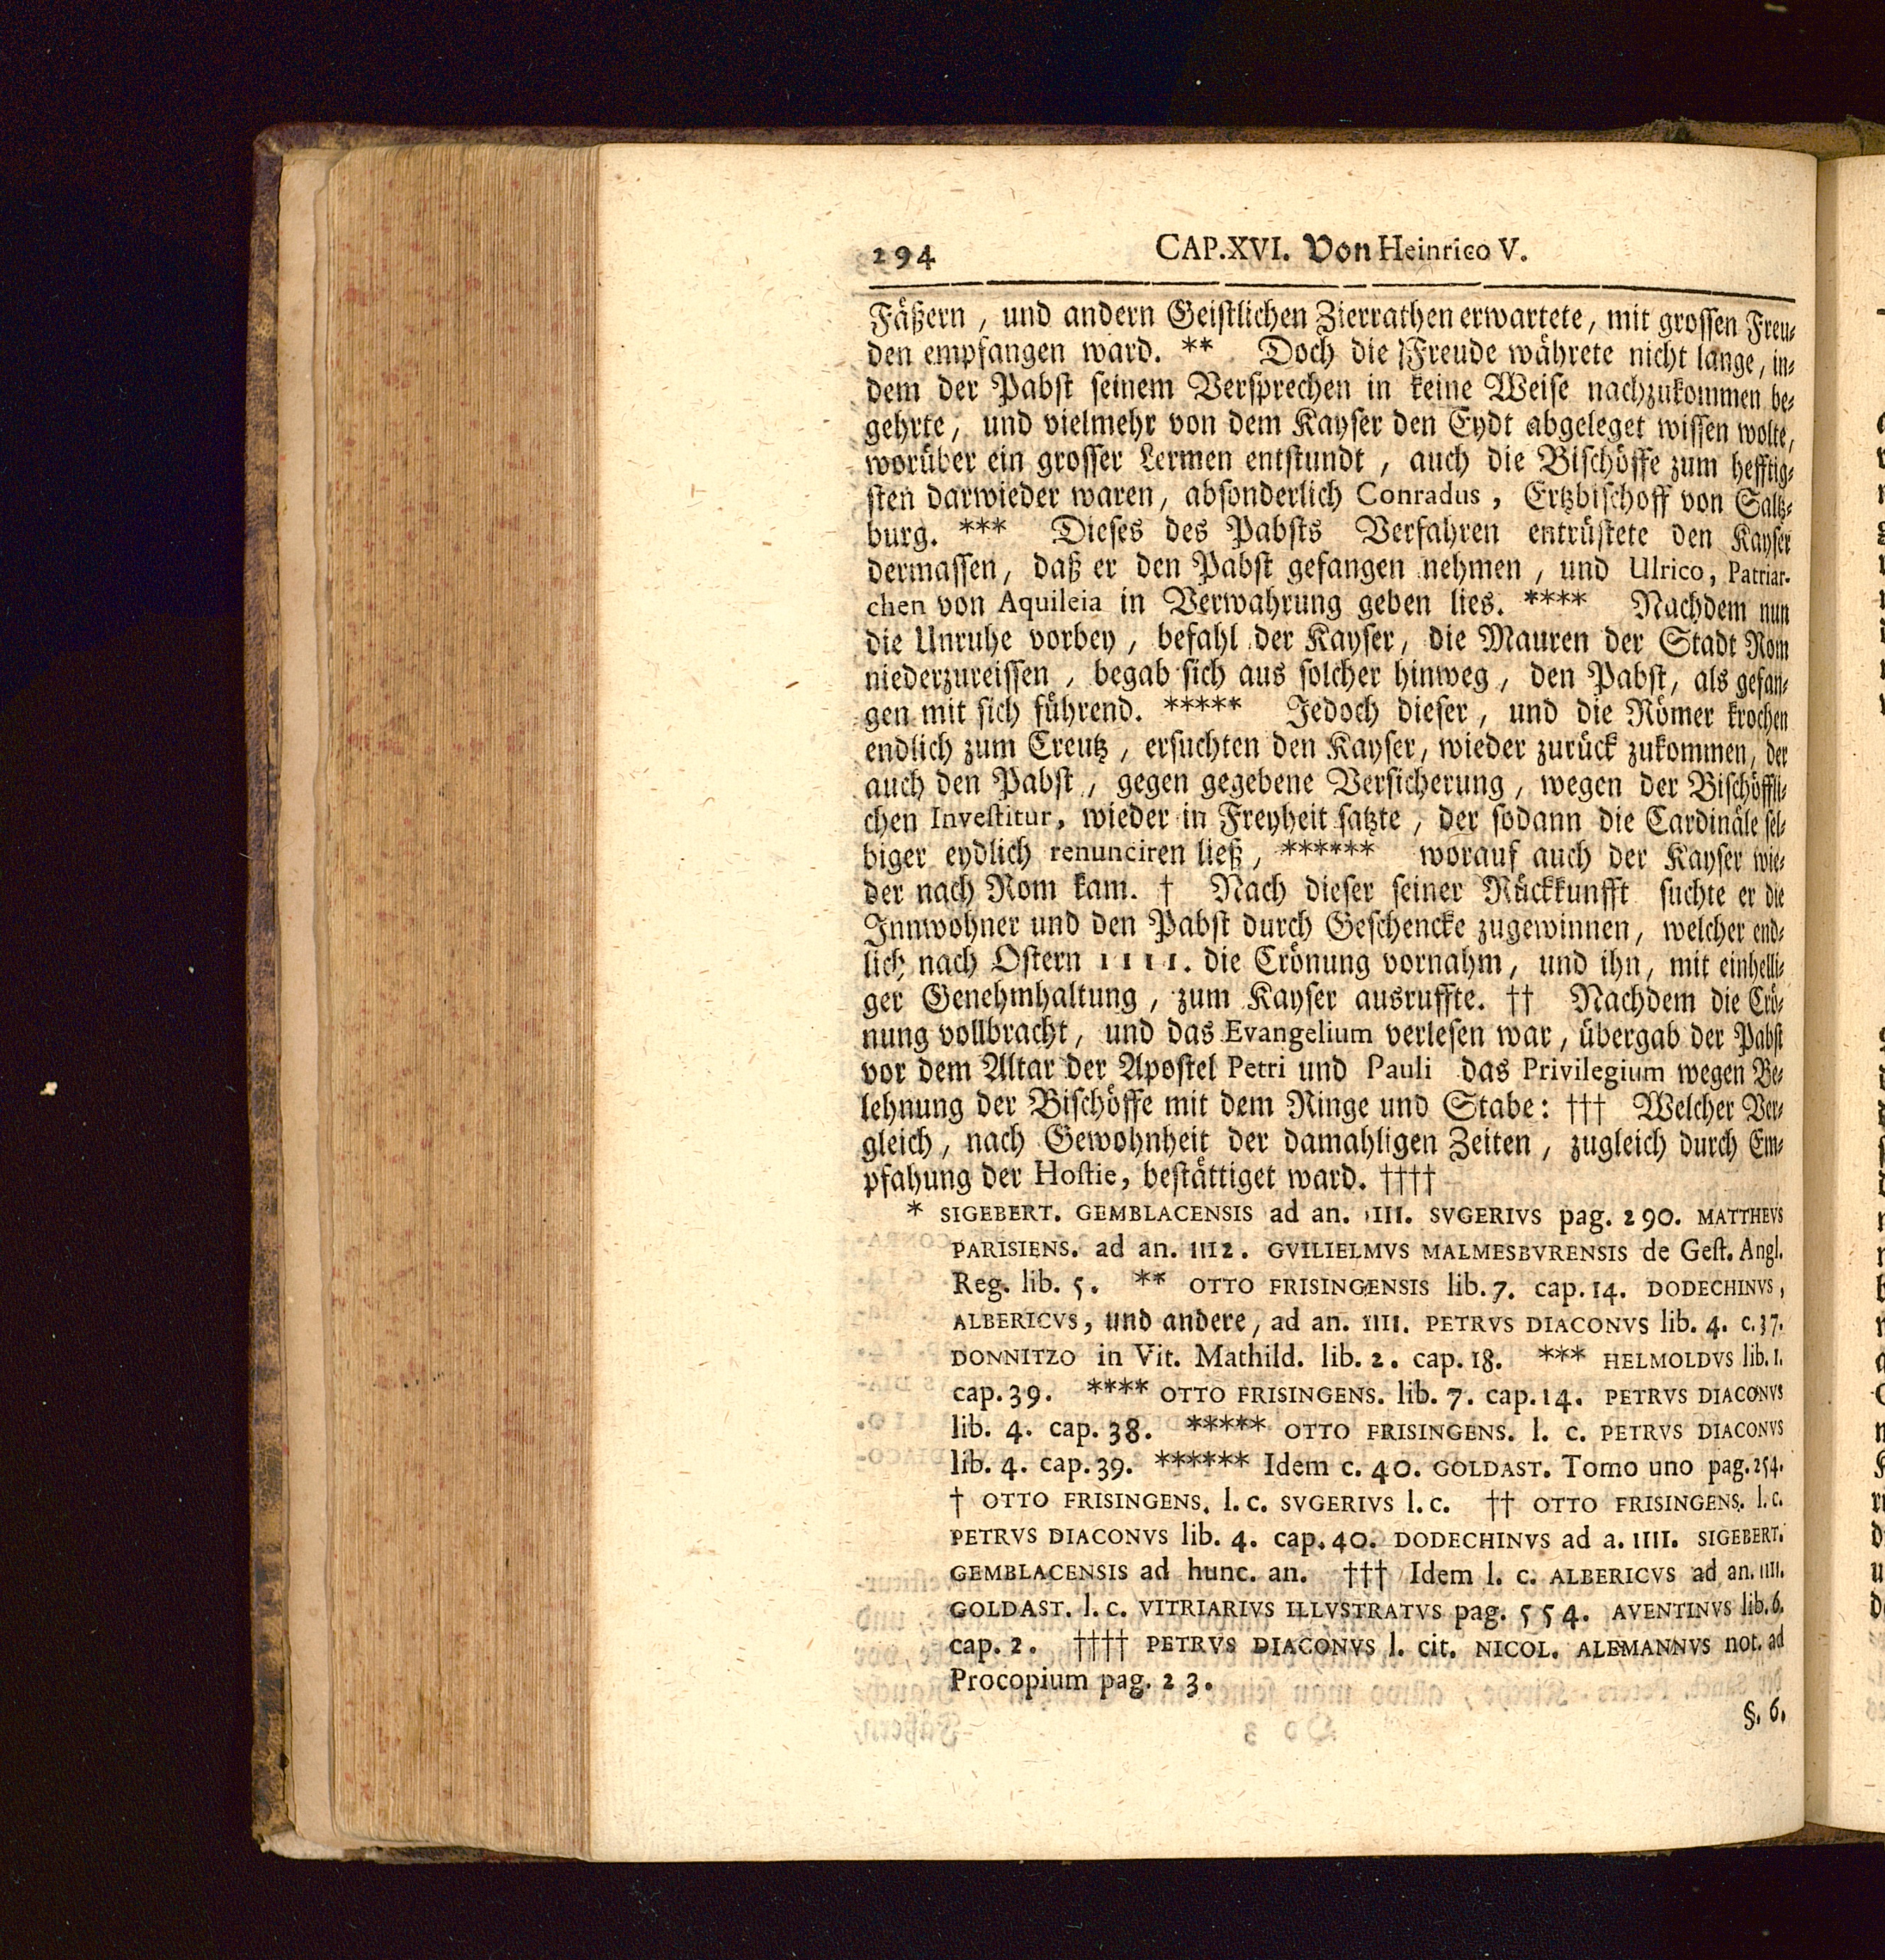 294 CAP.XVI. Von Heinrico V.
Fäßern, und andern Geistlichen Zierrathen erwartete, mit grossen Freu-
den empfangen ward. ** Doch die Freude währete nicht lange, in-
dem der Pabst seinem Versprechen in keine Weise nachzukommen be-
gehrte, und vielmehr von dem Kayser den Eydt abgeleget wissen wolte,
worüber ein grosser Lermen entstundt, auch die Bischöffe zum hefftig-
sten darwieder waren, absonderlich Conradus, Ertzbischoff von Saltz-
burg. *** Dieses des Pabsts Verfahren entrüstete den Kayser
dermassen, daß er den Pabst gefangen nehmen, und Ulrico, Patriar-
chen von Aquileia in Verwahrung geben lies. **** Nachdem nun
die Unruhe vorbey, befahl der Kayser, die Mauren der Stadt Rom
niederzureissen, begab sich aus solcher hinweg, den Pabst, als gefan-
gen mit sich führend. ***** Jedoch dieser, und die Römer krochen
endlich zum Creutz, ersuchten den Kayser, wieder zurück zukommen, der
auch den Pabst, gegen gegebene Versicherung, wegen der Bischöffli-
chen Investitur, wieder in Freyheit satzte, der sodann die Cardinäle sel-
biger eydlich renunciren ließ, ****** worauf auch der Kayser wie-
der nach Rom kam. † Nach dieser seiner Rückkunfft suchte er die
Innwohner und den Pabst durch Geschencke zugewinnen, welcher end-
lich nach Ostern 1111. die Crönung vornahm, und ihn, mit einhelli-
ger Genehmhaltung, zum Kayser ausruffte. †† Nachdem die Crö-
nung vollbracht, und das Evangelium verlesen war, übergab der Pabst
vor dem Altar der Apostel Petri und Pauli das Privilegium wegen Be-
lehnung der Bischöffe mit dem Ringe und Stabe: ††† Welcher Ver-
gleich, nach Gewohnheit der damahligen Zeiten, zugleich durch Em-
pfahung der Hostie, bestättiget ward. ††††
* SIGEBERT. GEMBLACENSIS ad an. 1111. SVGERIVS pag. 290. MATTHEVS
PARISIENS. ad an. 1112. GVILIELMVS MALMESBVRENSIS de Gest. Angl.
Reg. lib. 5. ** OTTO FRISINGENSIS lib. 7. cap. 14. DODECHINVS,
ALBERICVS, und andere, ad an. 1111. PETRVS DIACONVS lib. 4. c. 37.
DONNITZO in Vit. Mathild. lib. 2. cap. 18. *** HELMOLDVS lib. 1.
cap. 39. **** OTTO FRISINGENS. lib. 7. cap. 14. PETRVS DIACONVS
lib. 4. cap. 38. ***** OTTO FRISINGENS. l. c. PETRVS DIACONVS
lib. 4. cap. 39. ****** Idem c. 40. GOLDAST. Tomo uno pag. 254.
† OTTO FRISINGENS. l. c. SVGERIVS l. c. †† OTTO FRISINGENS. l. c.
PETRVS DIACONVS lib. 4. cap. 40. DODECHINVS ad a. 1111. SIGEBERT.
GEMBLACENSIS ad hunc. an. ††† Idem l. c. ALBERICVS ad an. 1111.
GOLDAST. l. c. VITRIARIVS ILLVSTRATVS pag. 554. AVENTINVS lib. 6.
cap. 2. †††† PETRVS DIACONVS l. cit. NICOL. ALEMANNVS not. ad
Procopium pag. 23.
§. 6.